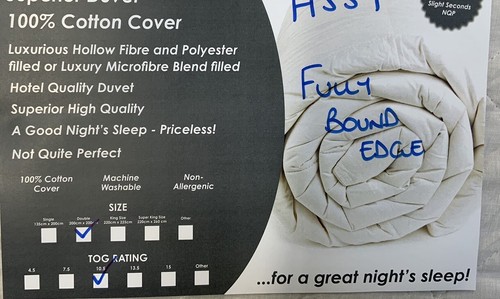 Superior Duvet
100% Cotton Cover
Luxurious Hollow Fibre and Polyester
filled or Luxury Microfibre Blend filled
Hotel Quality Duvet
Superior High Quality
A Good Night's Sleep - Priceless!
Not Quite Perfect
100% Cotton Cover
Machine Washable
Non-Allergenic
SIZE
Single 135cm x 200cm
Double 200cm x 200cm
King Size 220cm x 225cm
Super King Size 220cm x 260 cm
Other
TOG RATING
4.5 7.5 10.5 13.5 15 Other
Slight Seconds
NQP
FULLY
BOUND
EDGE
...for a great night's sleep!